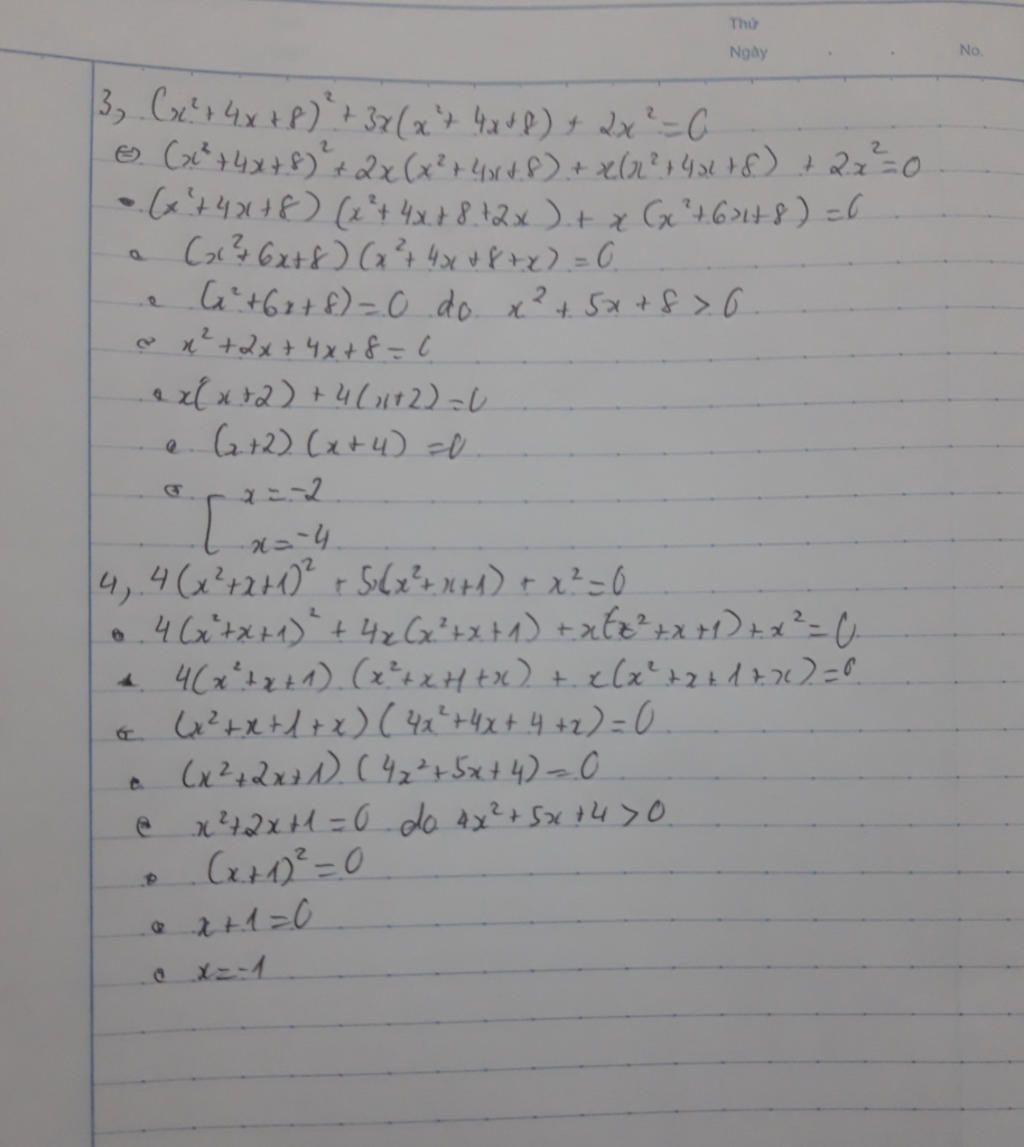 Thứ
Ngày . . No.
3, (x²+4x+8)² + 3x(x²+4x+8) + 2x² = 0
⇔ (x²+4x+8)² + 2x(x²+4x+8) + x(x²+4x+8) + 2x² = 0
⇔ (x²+4x+8)(x²+4x+8+2x) + x(x²+6x+8) = 0
⇔ (x²+6x+8)(x²+4x+8+x) = 0
⇔ (x²+6x+8) = 0 do x²+5x+8 > 0
⇔ x²+2x+4x+8 = 0
⇔ x(x+2) + 4(x+2) = 0
⇔ (x+2)(x+4) = 0
⇔ [ x = -2
x = -4
4, 4(x²+x+1)² + 5x(x²+x+1) + x² = 0
⇔ 4(x²+x+1)² + 4x(x²+x+1) + x(x²+x+1) + x² = 0
⇔ 4(x²+x+1)(x²+x+1+x) + x(x²+x+1+x) = 0
⇔ (x²+x+1+x)(4x²+4x+4+x) = 0
⇔ (x²+2x+1)(4x²+5x+4) = 0
⇔ x²+2x+1 = 0 do 4x²+5x+4 > 0
⇔ (x+1)² = 0
⇔ x+1 = 0
⇔ x = -1